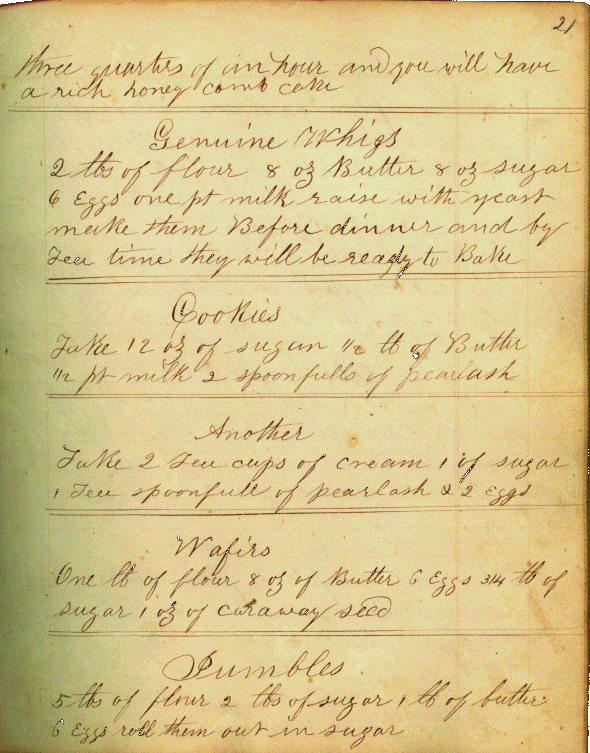 21
three quarters of an hour and you will have
a rich honey comb cake
Genuine Whigs
2 lbs of flour 8 oz Butter 8 oz sugar
6 Eggs one pt milk raise with yeast
make them Before dinner and by
Tea time they will be ready to Bake
Cookies
Take 12 oz of sugar 1/2 lb of Butter
1/2 pt milk 2 spoonfulls of pearlash
Another
Take 2 Tea cups of cream 1 of sugar
1 Tea spoonfull of pearlash & 2 Eggs
Wafirs
One lb of flour 8 oz of Butter 6 Eggs 3/4 lb of
sugar 1 oz of caraway seed
Jumbles
5 lbs of flour 2 lbs of sugar 1 lb of butter
6 Eggs roll them out in sugar